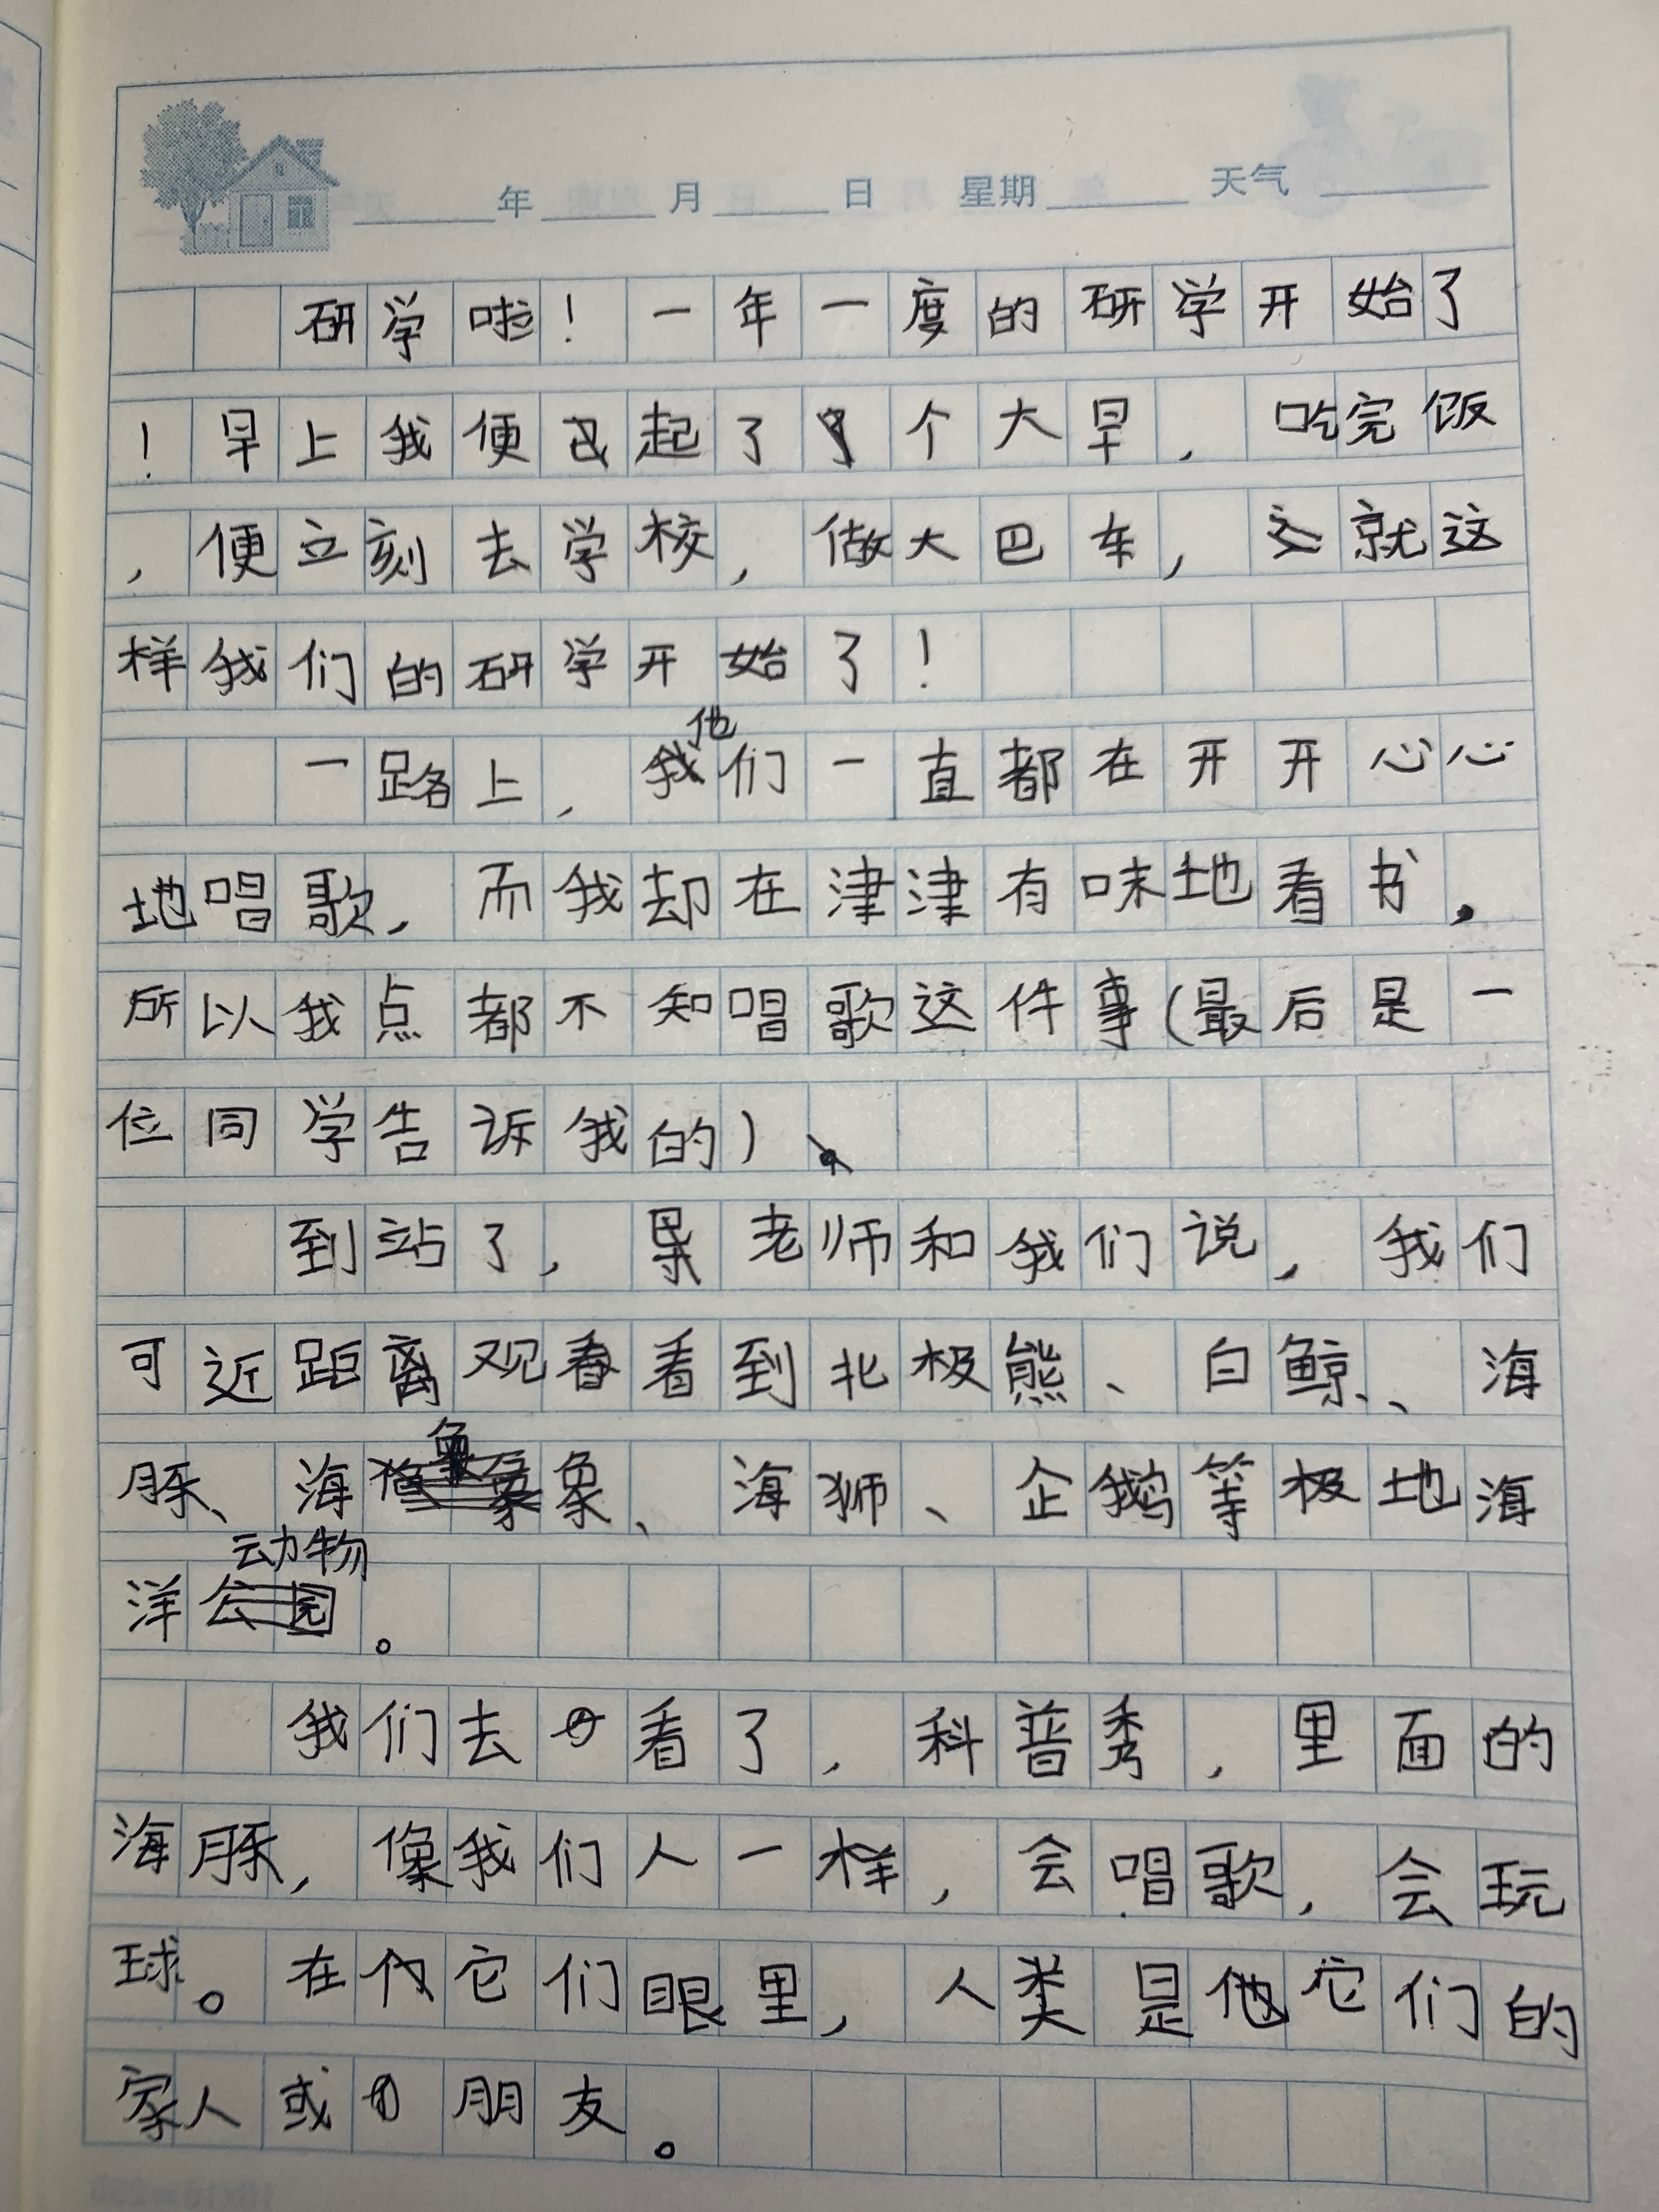 年 月 日 星期 天气
研学啦！一年一度的研学开始了
！早上我便起了个大早，吃完饭
，便立刻去学校，做大巴车，就这
样我们的研学开始了！
一路上，他们一直都在开开心心
地唱歌，而我却在津津有味地看书，
所以我点都不知唱歌这件事（最后是一
位同学告诉我的）。
到站了，老师和我们说，我们
可近距离观看到北极熊、白鲸、海
豚、海象、海狮、企鹅等极地海
洋动物。
我们去看了，科普秀，里面的
海豚，像我们人一样，会唱歌，会玩
球。在它们眼里，人类是它们的
家人或朋友。